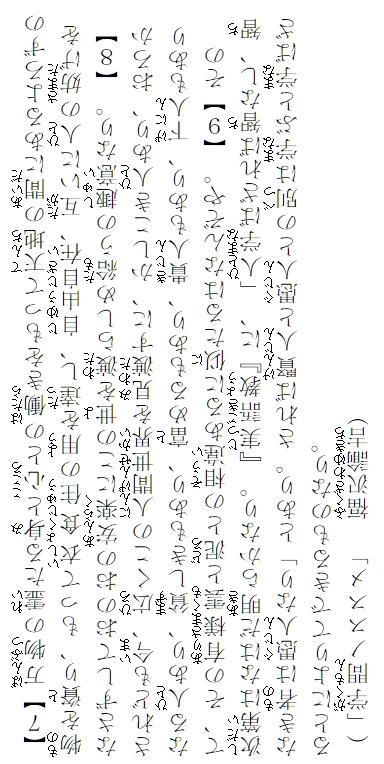 【7】万物の霊たる身と心との働きをもって天地の間にあるよろずの
物を資り、もって衣食住の用を達し、自由自在、互いに人の妨げを
なさずしておのおの安楽にこの世を渡らしめ給うの趣意なり。【8】
されども今広くこの人間世界を見渡すに、かしこき人あり、おろか
なる人あり、貧しきもあり、富めるもあり、貴人もあり、下人もあり
て、その有様雲と泥との相違あるに似たるはなんぞや。【9】その
次第はなはだ明らかなり。『実語教』に、「人学ばざれば智なし、智
なき者は愚人なり」とあり。されば賢人と愚人との別は学ぶと学ばざ
るとによりてできるものなり。
(「学問ノススメ」 福沢諭吉)